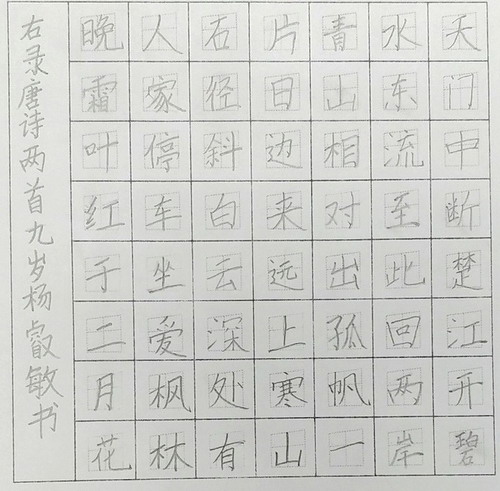 天门中断楚江开碧
水东流至此回两岸
青山相对出孤帆一
片日边来远上寒山
石径斜白云深处有
人家停车坐爱枫林
晚霜叶红于二月花
右录唐诗两首九岁杨叡敏书